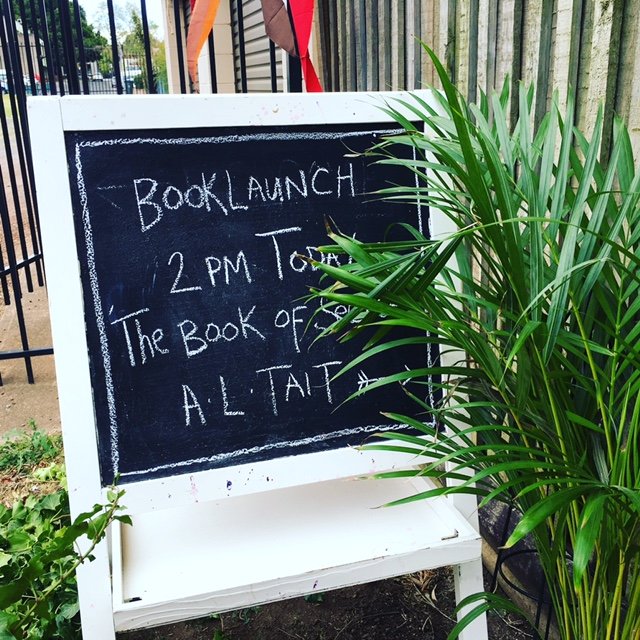 BOOKLAUNCH
2 PM TODAY
THE BOOK OF
A.L. TAIT